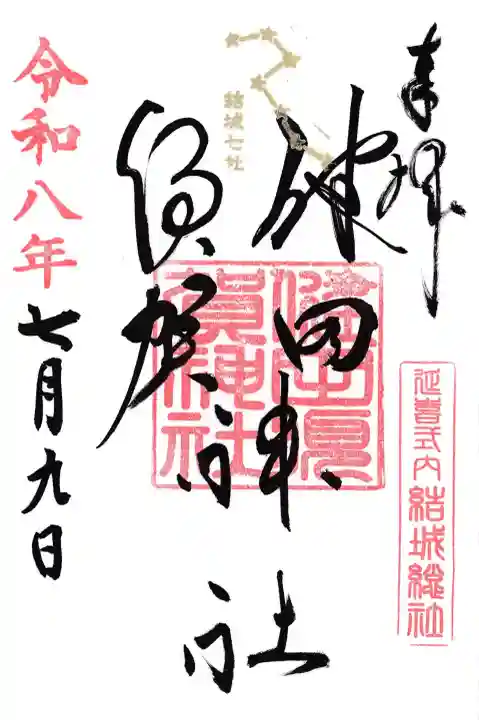 奉拝
延喜式内 結城総社
結城七社
健田
須賀
神社
健田須
賀神社
令和八年
七月九日